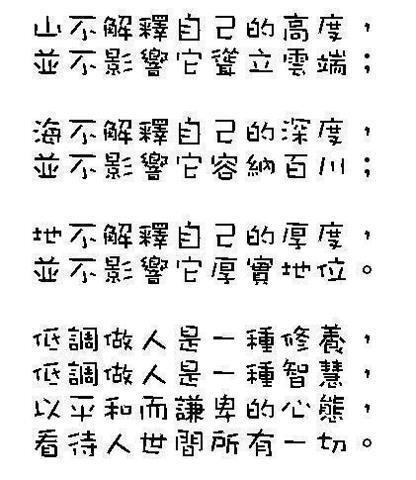 山不解釋自己的高度，
並不影響它聳立雲端；
海不解釋自己的深度，
並不影響它容納百川；
地不解釋自己的厚度，
並不影響它厚實地位。
低調做人是一種修養，
低調做人是一種智慧，
以平和而謙卑的心態，
看待人世間所有一切。